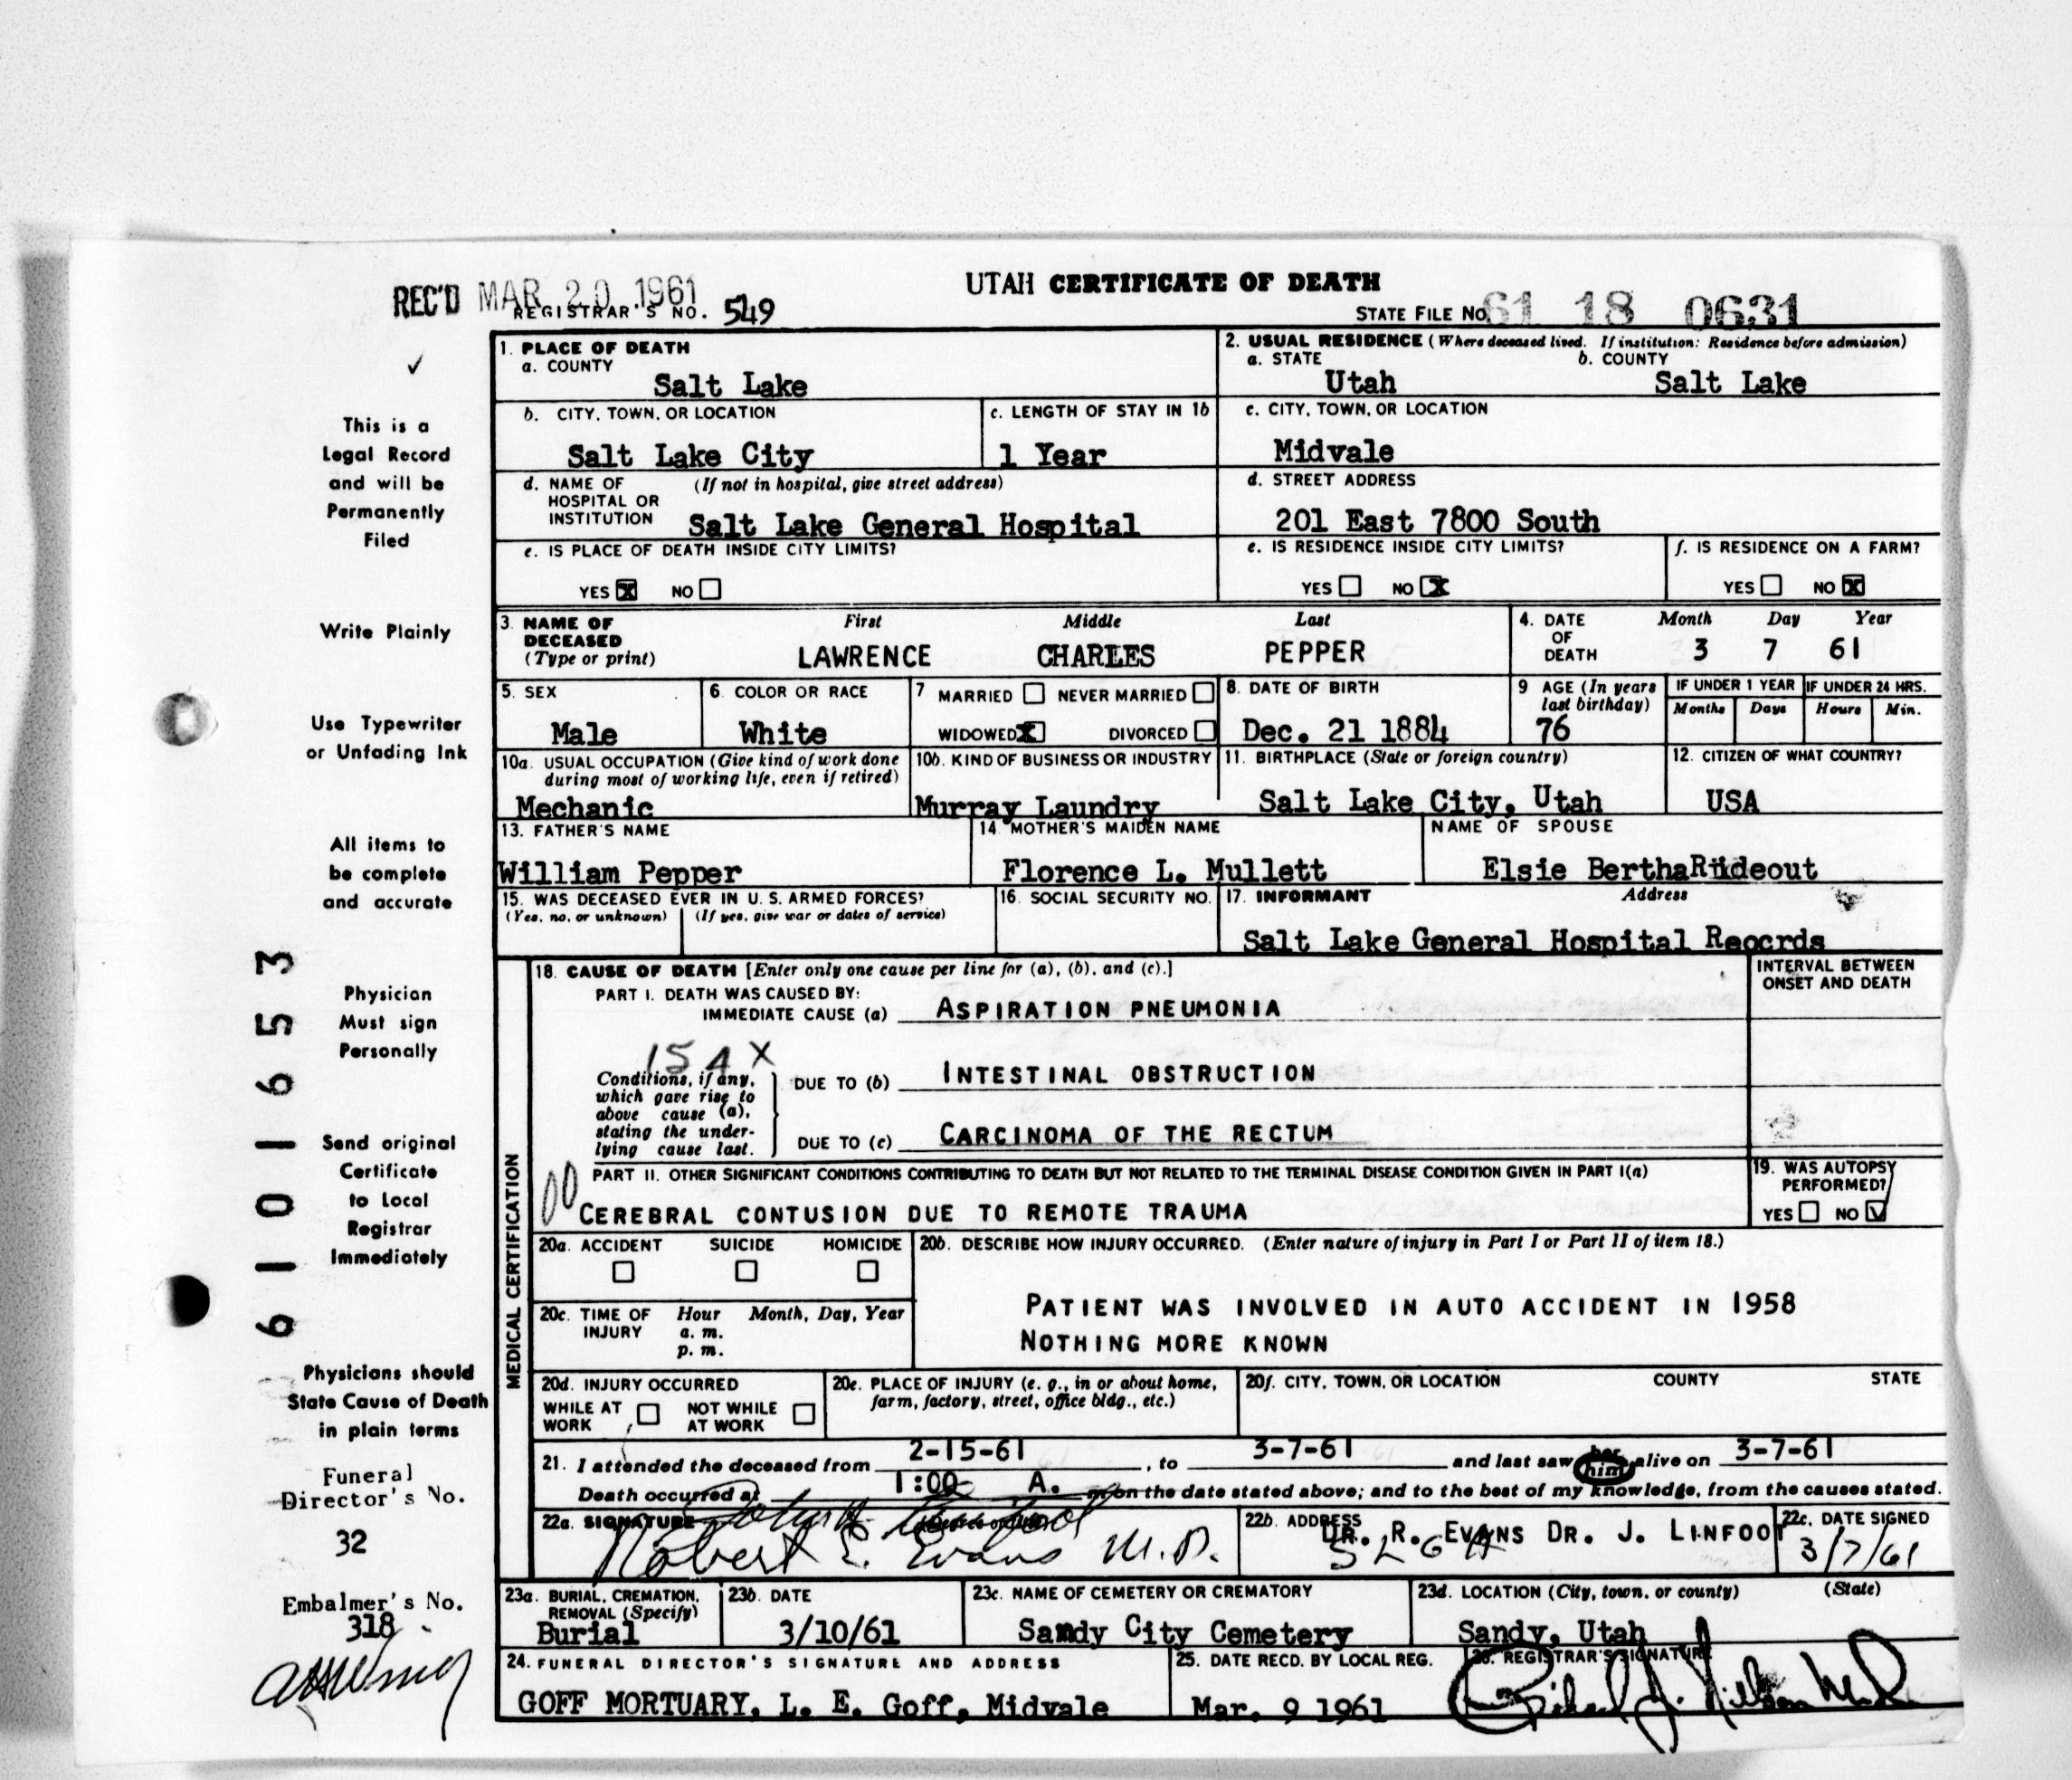 UTAH CERTIFICATE OF DEATH
REC'D MAR 20 1961
REGISTRAR'S NO. 549
STATE FILE No. 61 18 0631
✓
This is a
Legal Record
and will be
Permanently
Filed
Write Plainly
Use Typewriter
or Unfading Ink
All items to
be complete
and accurate
Physician
Must sign
Personally
Send original
Certificate
to Local
Registrar
Immediately
Physicians should
State Cause of Death
in plain terms
Funeral
Director's No.
32
Embalmer's No.
318
61 01 653
1. PLACE OF DEATH
a. COUNTY
Salt Lake
2. USUAL RESIDENCE (Where deceased lived. If institution: Residence before admission)
a. STATE b. COUNTY
Utah Salt Lake
b. CITY, TOWN, OR LOCATION
Salt Lake City
c. LENGTH OF STAY IN 1b
1 Year
c. CITY, TOWN, OR LOCATION
Midvale
d. NAME OF (If not in hospital, give street address)
HOSPITAL OR
INSTITUTION Salt Lake General Hospital
d. STREET ADDRESS
201 East 7800 South
e. IS PLACE OF DEATH INSIDE CITY LIMITS?
YES X NO
e. IS RESIDENCE INSIDE CITY LIMITS?
YES NO X
f. IS RESIDENCE ON A FARM?
YES NO X
3. NAME OF First Middle Last
DECEASED
(Type or print) LAWRENCE CHARLES PEPPER
4. DATE Month Day Year
OF
DEATH 3 7 61
5. SEX
Male
6. COLOR OR RACE
White
7 MARRIED NEVER MARRIED
WIDOWED X DIVORCED
8. DATE OF BIRTH
Dec. 21 1884
9 AGE (In years
last birthday)
76
IF UNDER 1 YEAR IF UNDER 24 HRS.
Months Days Hours Min.
10a. USUAL OCCUPATION (Give kind of work done
during most of working life, even if retired)
Mechanic
10b. KIND OF BUSINESS OR INDUSTRY
Murray Laundry
11. BIRTHPLACE (State or foreign country)
Salt Lake City, Utah
12. CITIZEN OF WHAT COUNTRY?
USA
13. FATHER'S NAME
William Pepper
14. MOTHER'S MAIDEN NAME
Florence L. Mullett
NAME OF SPOUSE
Elsie Bertha Rideout
15. WAS DECEASED EVER IN U. S. ARMED FORCES?
(Yes, no, or unknown) (If yes, give war or dates of service)
16. SOCIAL SECURITY NO.
17. INFORMANT Address
Salt Lake General Hospital Records
MEDICAL CERTIFICATION
18. CAUSE OF DEATH [Enter only one cause per line for (a), (b), and (c).]
PART I. DEATH WAS CAUSED BY:
IMMEDIATE CAUSE (a) ASPIRATION PNEUMONIA
INTERVAL BETWEEN
ONSET AND DEATH
154X
Conditions, if any,
which gave rise to
above cause (a),
stating the under-
lying cause last.
DUE TO (b) INTESTINAL OBSTRUCTION
DUE TO (c) CARCINOMA OF THE RECTUM
00
PART II. OTHER SIGNIFICANT CONDITIONS CONTRIBUTING TO DEATH BUT NOT RELATED TO THE TERMINAL DISEASE CONDITION GIVEN IN PART I(a)
CEREBRAL CONTUSION DUE TO REMOTE TRAUMA
19. WAS AUTOPSY
PERFORMED?
YES NO ✓
20a. ACCIDENT SUICIDE HOMICIDE
20b. DESCRIBE HOW INJURY OCCURRED. (Enter nature of injury in Part I or Part II of item 18.)
PATIENT WAS INVOLVED IN AUTO ACCIDENT IN 1958
NOTHING MORE KNOWN
20c. TIME OF Hour Month, Day, Year
INJURY a. m.
p. m.
20d. INJURY OCCURRED
WHILE AT NOT WHILE
WORK AT WORK
20e. PLACE OF INJURY (e. g., in or about home,
farm, factory, street, office bldg., etc.)
20f. CITY, TOWN, OR LOCATION COUNTY STATE
21. I attended the deceased from 2-15-61, to 3-7-61 and last saw her him alive on 3-7-61
Death occurred at 1:00 A. m on the date stated above; and to the best of my knowledge, from the causes stated.
22a. SIGNATURE
Robert E. Evans M.D.
22b. ADDRESS
DR. R. EVANS DR. J. LINFOOT
SLGH
22c. DATE SIGNED
3/7/61
23a. BURIAL, CREMATION,
REMOVAL (Specify)
Burial
23b. DATE
3/10/61
23c. NAME OF CEMETERY OR CREMATORY
Sandy City Cemetery
23d. LOCATION (City, town, or county) (State)
Sandy, Utah
24. FUNERAL DIRECTOR'S SIGNATURE AND ADDRESS
GOFF MORTUARY, L. E. Goff, Midvale
25. DATE RECD. BY LOCAL REG.
Mar. 9 1961
26. REGISTRAR'S SIGNATURE